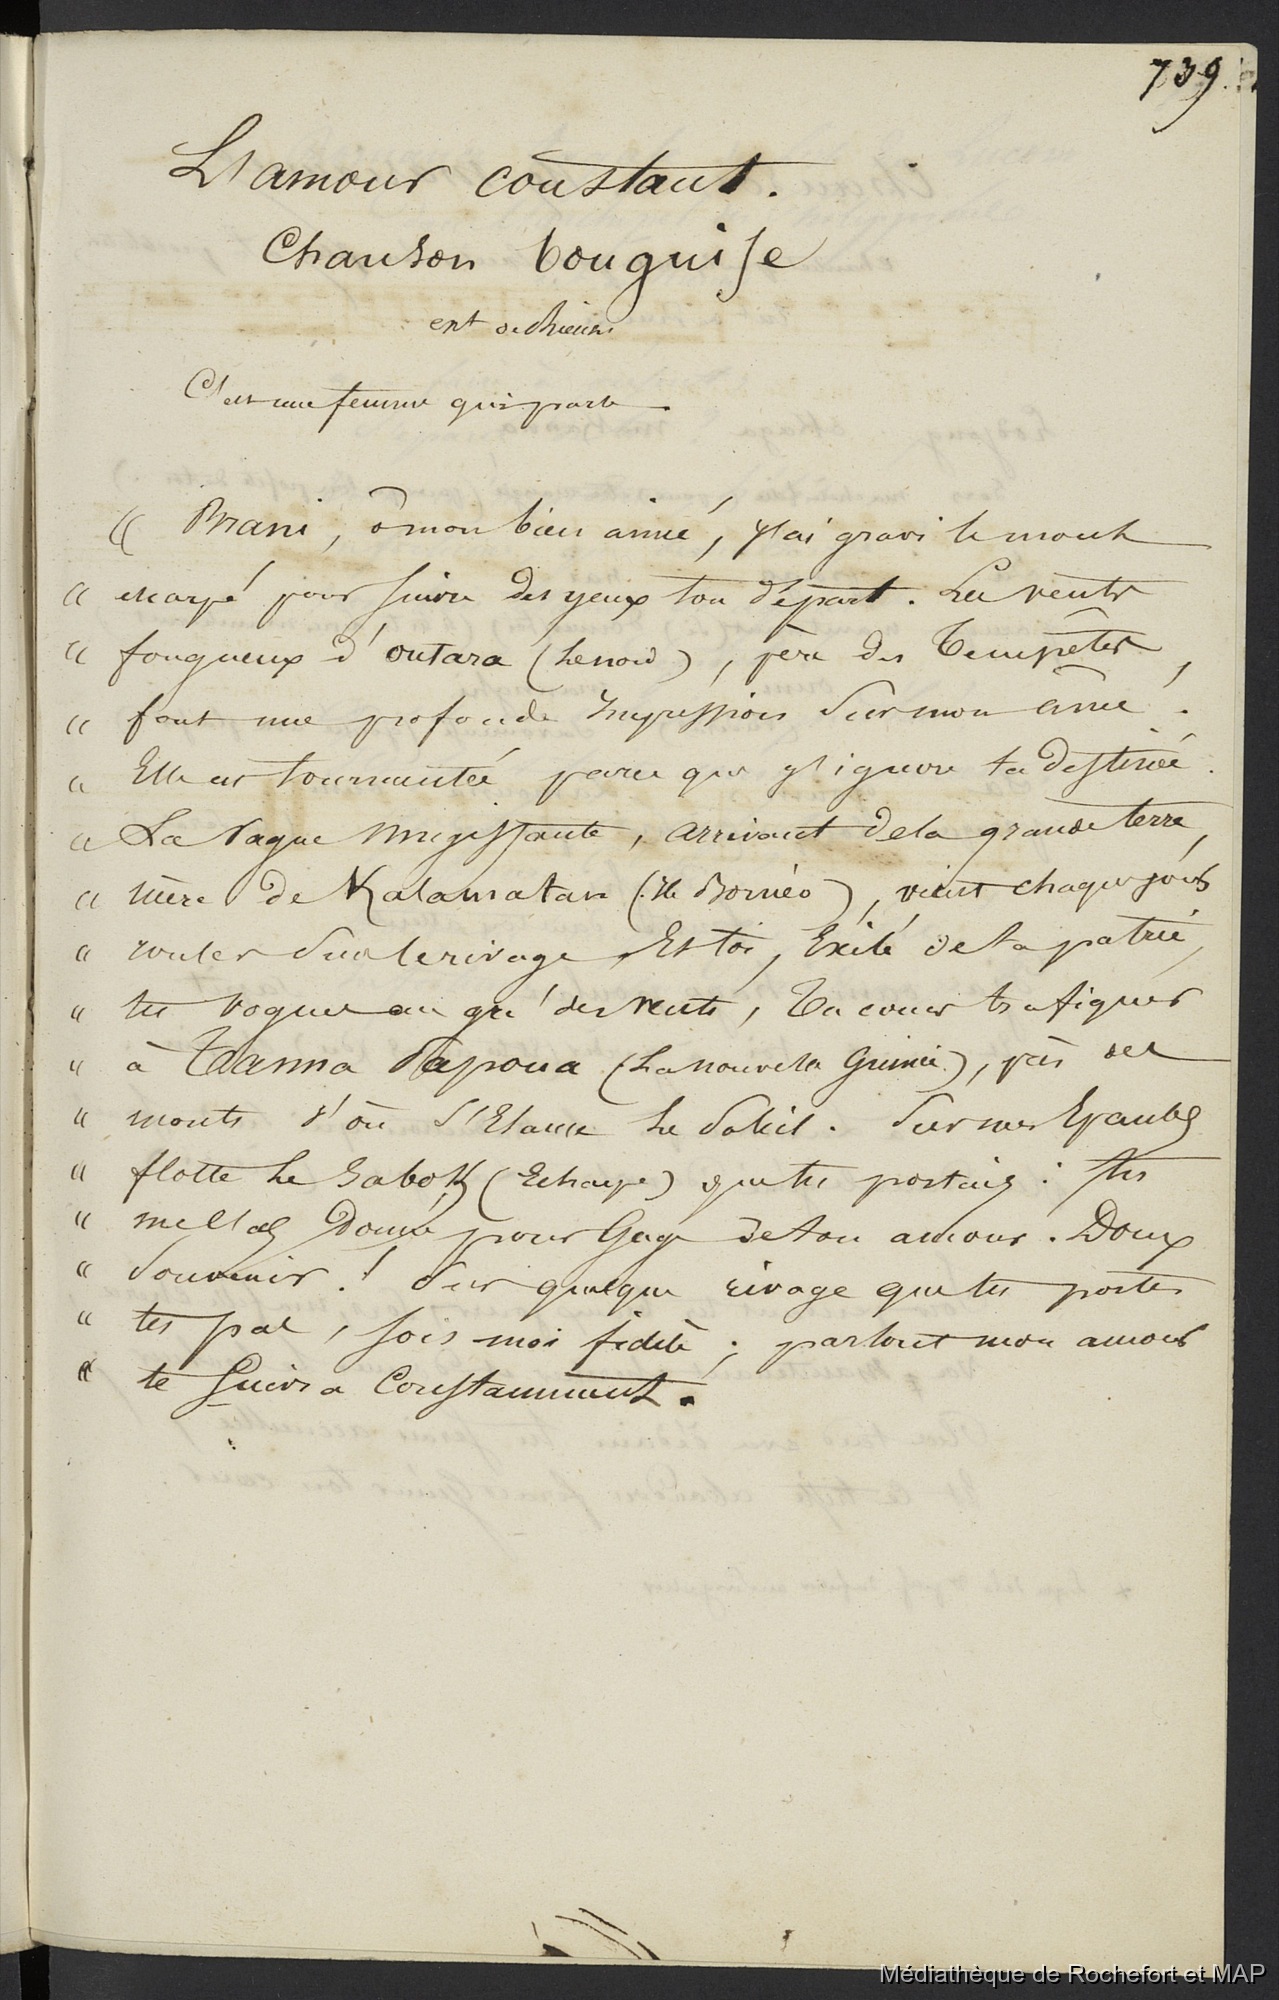 739.
L'amour constant.
Chanson bouguise
C'est une femme qui parle.
« Brani, ô mon bien aimé, j'ai gravi le mont
« escarpé pour suivre des yeux ton départ. Les vents
« fougueux d'outara (le nord), père des Tempêtes,
« font une profonde Impression sur mon âme.
« Elle est tourmentée parce que j'ignore ta destinée.
« La Vague mugissante, arrivant de la grande terre,
« mère de Kalamatan (Ile Bornéo), vient chaque jour
« rouler sur le rivage. Et toi, Exilé de ta patrie,
« tu vogues au gré des vents, Tu cours trafiquer
« à Tanna Papoua (La nouvelle Guinée), près des
« monts d'où s'Elance le Soleil. Sur mes Epaules
« flotte le Sabok (Echarpe) que tu portais : tu
« me l'as Donné pour Gage de ton amour. Doux
« Souvenir ! Sur quelque rivage que tu portes
« tes pas, sois moi fidèle ; partout mon amour
« te Suivra Constamment.
Médiathèque de Rochefort et MAP